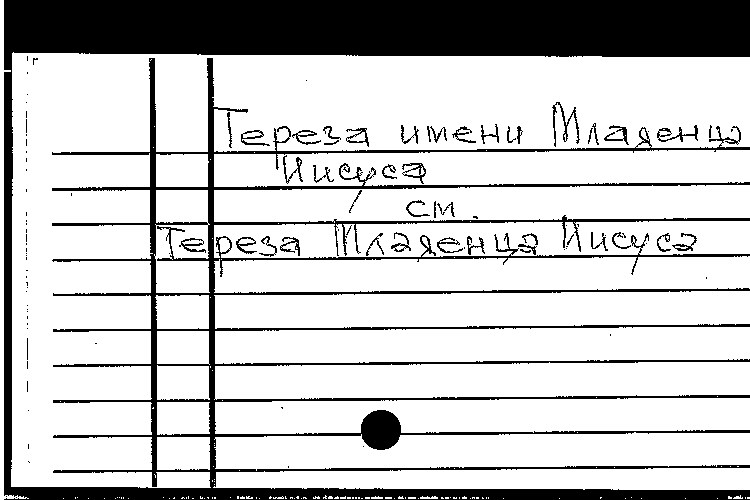 Тереза имени Младенца
Иисуса
см.
Тереза Младенца Иисуса